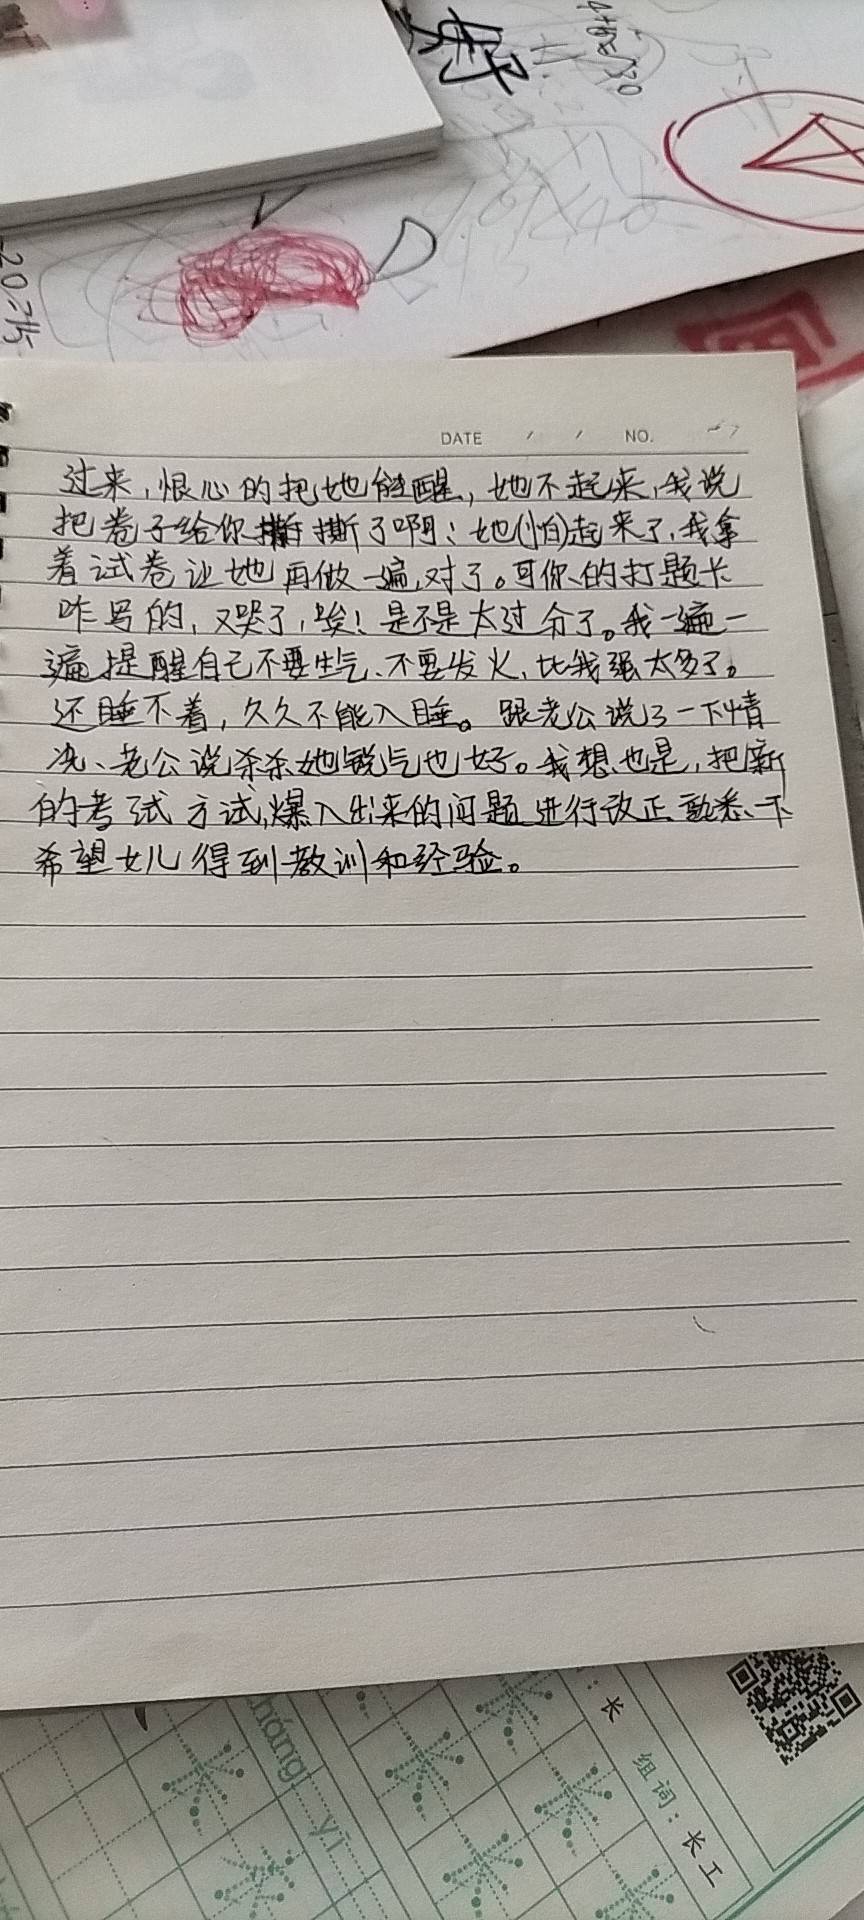 好
DATE / / NO.
过来,恨心的把她能醒,她不起来,我说
把卷子给你撕了啊!她(怕)起来了,我拿
着试卷让她再做一遍,对了。可你的打题卡
咋写的,又哭了,唉!是不是太过分了。我一遍一
遍提醒自己不要生气、不要发火,比我强太多了。
还睡不着,久久不能入睡。跟老公说了一下情
况、老公说杀杀她锐气也好。我想也是,把新
的考试方试,爆入出来的问题进行改正熟悉一下
希望女儿得到教训和经验。
háng
yī
:长
组词:长工